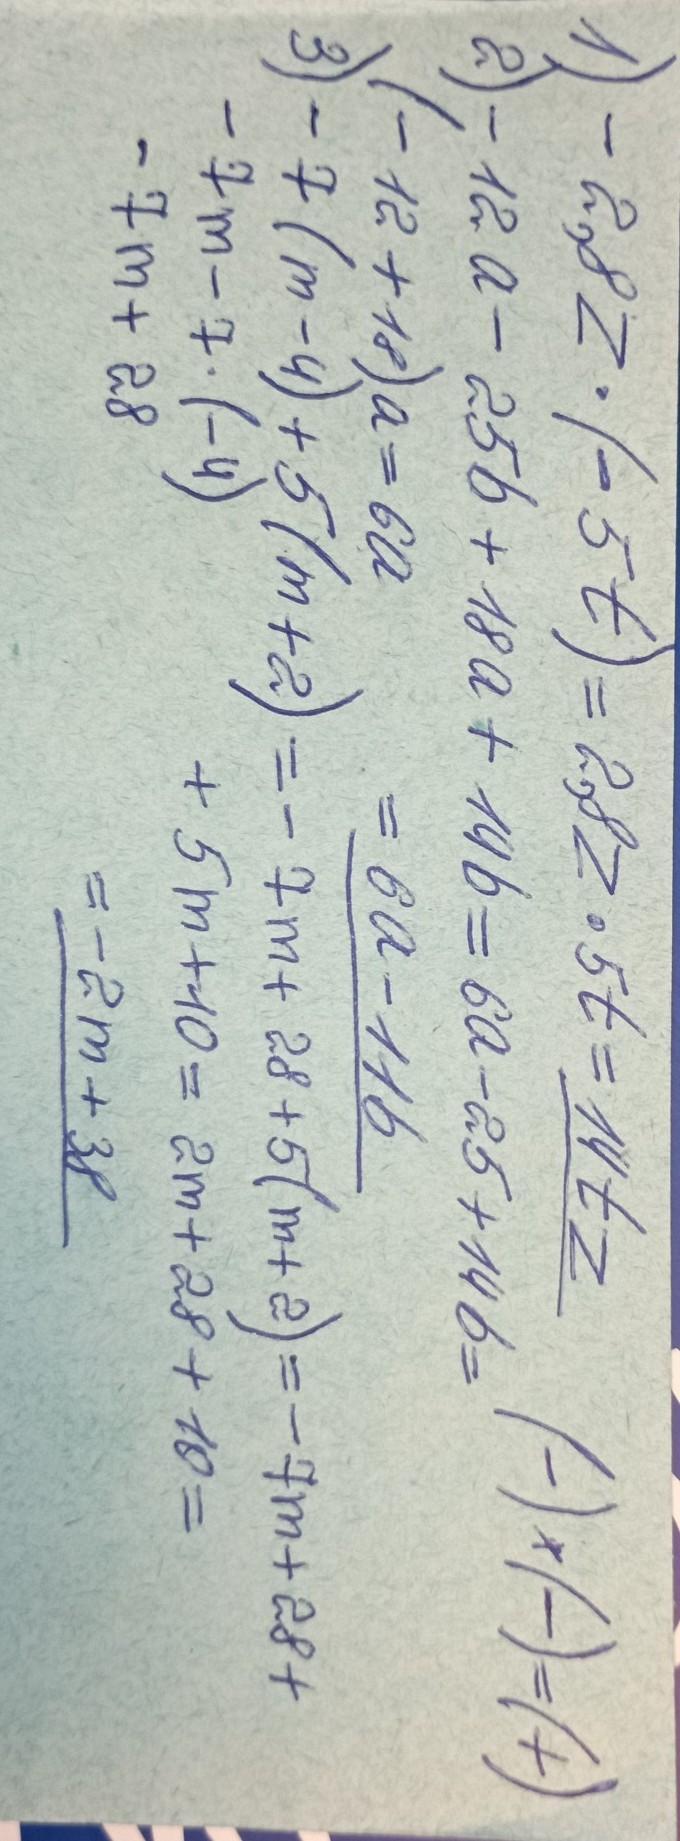 1) - 2,8z · (- 5t) = 2,8z · 5t = 14tz
(-) * (-) = (+)
2) - 12a - 25b + 18a + 14b = 6a - 25 + 14b =
(- 12 + 18)a = 6a = 6a - 11b
3) - 7(m - 4) + 5(m + 2) = - 7m + 28 + 5(m + 2) = - 7m + 28 +
- 7m - 7 · (-4) + 5m + 10 = 2m + 28 + 10 =
- 7m + 28 = - 2m + 38